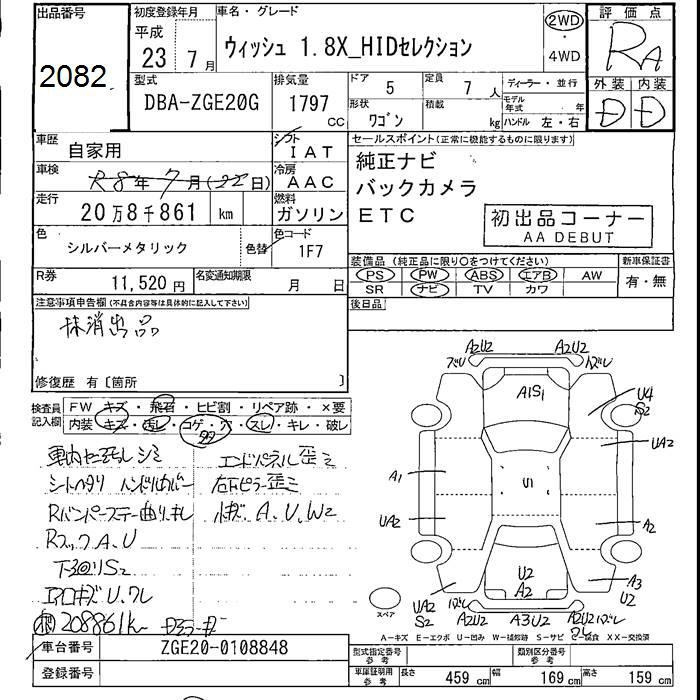 出品番号
2082
初度登録年月
平成
23年 7月
車名・グレード
ウィッシュ 1.8X_HIDセレクション
2WD
・
4WD
評価点
RA
外装 内装
D D
型式
DBA-ZGE20G
排気量
1797
CC
ドア
5
定員
7 人
形状
ワゴン
積載
kg
ディーラー・並行
モデル年式 年
ハンドル 左・右
車歴
自家用
シフト
IAT
車検
R8年7月(22日)
冷房
AAC
走行
20万8千861 km
燃料
ガソリン
色
シルバーメタリック
色替
色コード
1F7
R券
11,520 円
名変通知期限
月 日
セールスポイント(正常に機能するものに限ります)
純正ナビ
バックカメラ
ETC
初出品コーナー
AA DEBUT
装備品 (純正品に限り○をつけてください)
PS PW ABS エアB AW
SR ナビ TV カワ
新車保証書
有・無
後日品
注意事項申告欄(不具合内容等は具体的に記入して下さい)
抹消出品
修復歴 有〔箇所 〕
検査員記入欄
FW キズ・飛石・ヒビ割・リペア跡・×要
内装 キズ・汚レ・コゲ・穴・スレ・キレ・破レ
シートヘタリ ハンドルカバー
エンドパネル歪ミ
Rバンパーステー曲り
A、U、W2
RフックA、U
下回りS2
エアロキズU、ワレ
208861k
A2U2 A2U2
ズレ ズレ
A1S1
U4
S2
UA2
A1
U1
UA2
A2
U2
A2
A3
U2
UA2
S2
ズレ
A2U2 A3U2 A2U2 ズレ
ワレ
スペア
A-キズ E-エクボ U-凹み W-補修跡 S-サビ C-腐食 XX-交換済
車台番号
ZGE20-0108848
登録番号
型式指定番号
参考
類別区分番号
参考
車庫証明用
参考
長さ 459 cm 幅 169 cm 高さ 159 cm